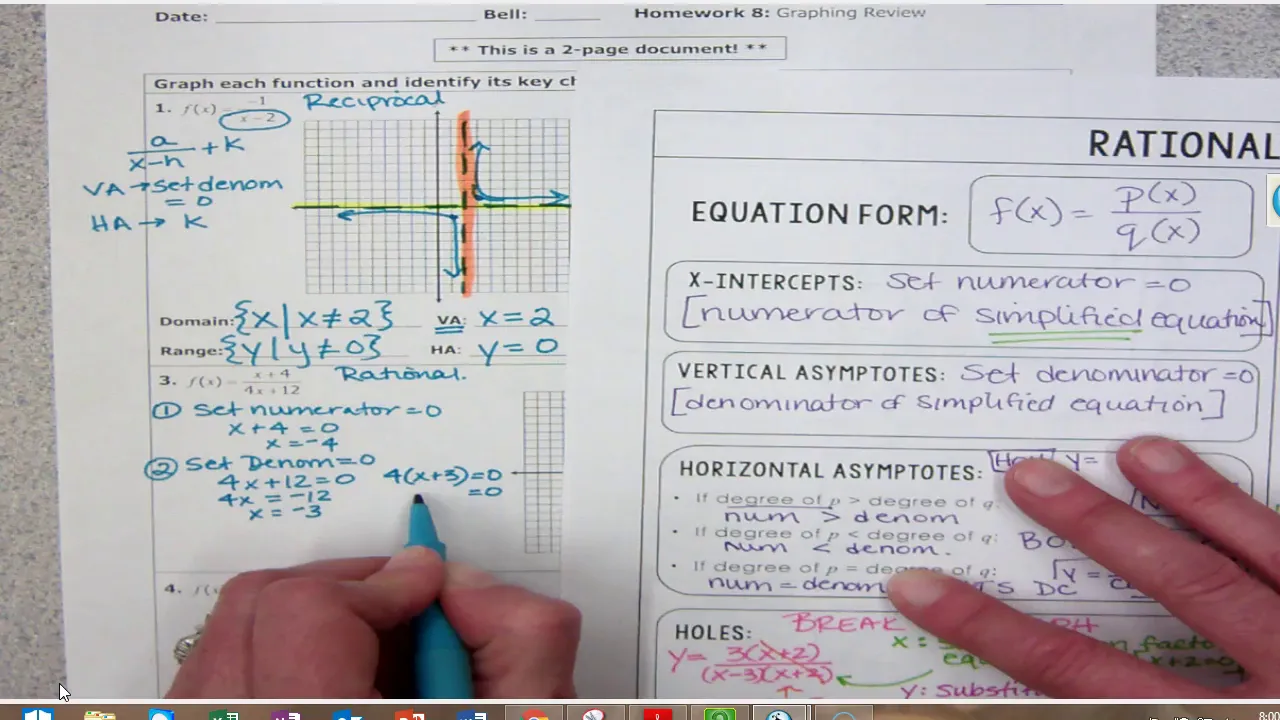 Date: Bell: Homework 8: Graphing Review
** This is a 2-page document! **
Graph each function and identify its key ch
1. f(x) = -1 / x - 2
Reciprocal
a / x-h + k
VA → set denom
= 0
HA → K
Domain: {x | x ≠ 2} VA: x = 2
Range: {y | y ≠ 0} HA: y = 0
3. f(x) = x + 4 / 4x + 12
Rational.
① Set numerator = 0
x + 4 = 0
x = -4
② Set Denom = 0
4x + 12 = 0
4x = -12
x = -3
4(x+3) = 0
= 0
4. f(x
RATIONAL
EQUATION FORM: f(x) = p(x) / q(x)
X-INTERCEPTS: Set numerator = 0
[numerator of simplified equation]
VERTICAL ASYMPTOTES: Set denominator = 0
[denominator of simplified equation]
HORIZONTAL ASYMPTOTES: y =
• If degree of p > degree of q:
num > denom
• If degree of p < degree of q: BO
num < denom.
• If degree of p = degree of q: y =
num = denom TS DC
HOLES: BREAK
y = 3(x+2) / (x-3)(x+2)
x :
y: Substi